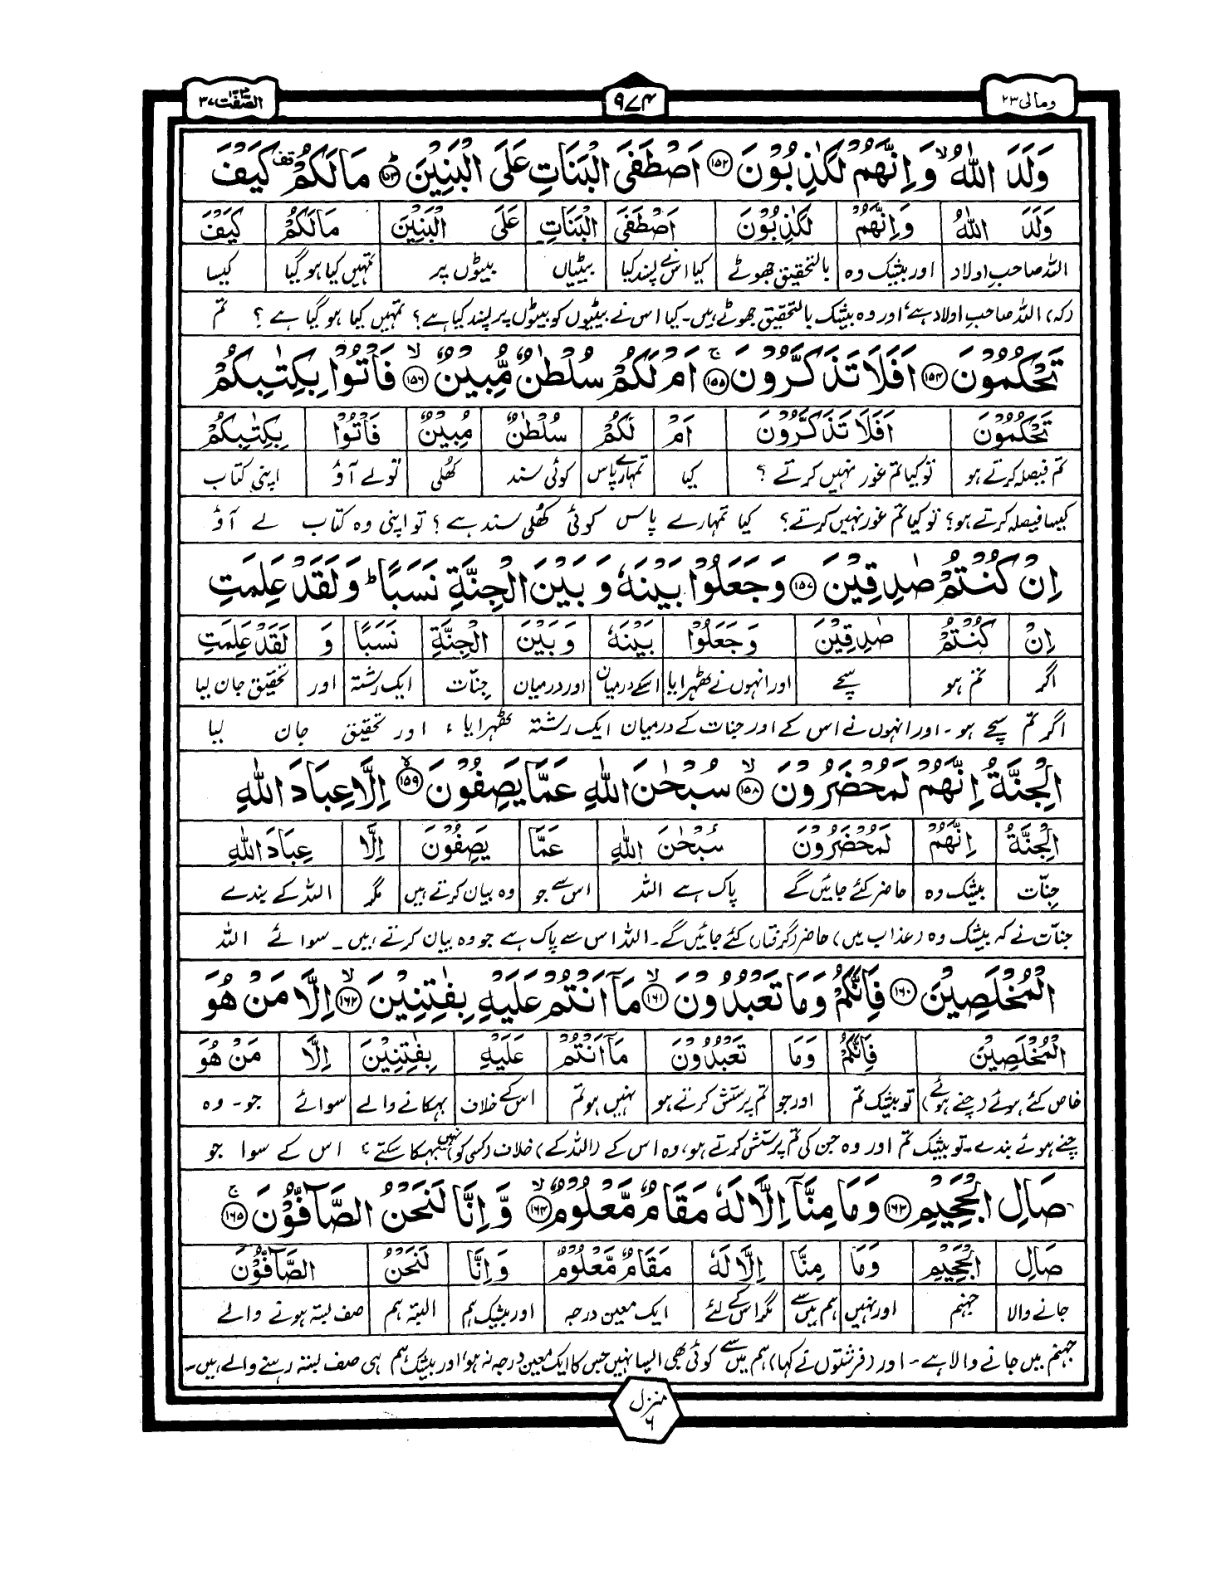 الصّٰفّٰت ۳۷
۹۷۴
ومالی ۲۳
وَلَدَ اللّٰهُ ۙ وَاِنَّهُمْ لَكٰذِبُوْنَ ۝۱۵۲ اَصْطَفَى الْبَنَاتِ عَلَى الْبَنِيْنَ ۝۱۵۳ؕ مَا لَكُمْ قف كَيْفَ
وَلَدَ اللّٰهُ | وَاِنَّهُمْ | لَكٰذِبُوْنَ | اَصْطَفَى | الْبَنَاتِ | عَلَى الْبَنِيْنَ | مَا لَكُمْ | كَيْفَ
اللہ صاحبِ اولاد | اور بیشک وہ | بالتحقیق جھوٹے | کیا اس نے پسند کیا | بیٹیاں | بیٹوں پر | تمہیں کیا ہو گیا | کیسا
(کہ) اللہ صاحبِ اولاد ہے، اور وہ بیشک بالتحقیق جھوٹے ہیں۔ کیا اس نے بیٹیوں کو بیٹوں پر پسند کیا ہے؟ تمہیں کیا ہو گیا ہے؟ تم
تَحْكُمُوْنَ ۝۱۵۴ اَفَلَا تَذَكَّرُوْنَ ۝۱۵۵ۚ اَمْ لَكُمْ سُلْطٰنٌ مُّبِيْنٌ ۝۱۵۶ۙ فَاْتُوْا بِكِتٰبِكُمْ
تَحْكُمُوْنَ | اَفَلَا تَذَكَّرُوْنَ | اَمْ | لَكُمْ | سُلْطٰنٌ | مُّبِيْنٌ | فَاْتُوْا | بِكِتٰبِكُمْ
تم فیصلہ کرتے ہو | تو کیا تم غور نہیں کرتے؟ | کیا | تمہارے پاس | کوئی سند | کھُلی | تو لے آؤ | اپنی کتاب
کیسا فیصلہ کرتے ہو؟ تو کیا تم غور نہیں کرتے؟ کیا تمہارے پاس کوئی کھُلی سند ہے؟ تو اپنی وہ کتاب لے آؤ
اِنْ كُنْتُمْ صٰدِقِيْنَ ۝۱۵۷ وَجَعَلُوْا بَيْنَهٗ وَبَيْنَ الْجِنَّةِ نَسَبًا ؕ وَلَقَدْ عَلِمَتِ
اِنْ | كُنْتُمْ | صٰدِقِيْنَ | وَجَعَلُوْا | بَيْنَهٗ | وَبَيْنَ | الْجِنَّةِ | نَسَبًا | وَ | لَقَدْ عَلِمَتِ
اگر | تم ہو | سچے | اور انہوں نے ٹھہرایا | اسکے درمیان | اور درمیان | جنّات | ایک رشتہ | اور | تحقیق جان لیا
اگر تم سچے ہو۔ اور انہوں نے اس کے اور جنات کے درمیان ایک رشتہ ٹھہرایا، اور تحقیق جان لیا
الْجِنَّةُ اِنَّهُمْ لَمُحْضَرُوْنَ ۝۱۵۸ۙ سُبْحٰنَ اللّٰهِ عَمَّا يَصِفُوْنَ ۝۱۵۹ۙ اِلَّا عِبَادَ اللّٰهِ
الْجِنَّةُ | اِنَّهُمْ | لَمُحْضَرُوْنَ | سُبْحٰنَ اللّٰهِ | عَمَّا | يَصِفُوْنَ | اِلَّا | عِبَادَ اللّٰهِ
جنّات | بیشک وہ | حاضر کئے جائیں گے | پاک ہے اللہ | اس سے جو | وہ بیان کرتے ہیں | مگر | اللہ کے بندے
جنّات نے کہ بیشک وہ (عذاب میں) حاضر (گرفتار) کئے جائیں گے۔ اللہ اس سے پاک ہے جو وہ بیان کرتے ہیں۔ سوائے اللہ
الْمُخْلَصِيْنَ ۝۱۶۰ فَاِنَّكُمْ وَمَا تَعْبُدُوْنَ ۝۱۶۱ۙ مَاۤ اَنْتُمْ عَلَيْهِ بِفٰتِنِيْنَ ۝۱۶۲ۙ اِلَّا مَنْ هُوَ
الْمُخْلَصِيْنَ | فَاِنَّكُمْ | وَمَا | تَعْبُدُوْنَ | مَاۤ اَنْتُمْ | عَلَيْهِ | بِفٰتِنِيْنَ | اِلَّا | مَنْ هُوَ
خاص کئے ہوئے (چنے ہوئے) | تو بیشک تم | اور جو | تم پرستش کرتے ہو | نہیں ہو تم | اس کے خلاف | بہکانے والے | سوائے | جو۔ وہ
چنے ہوئے بندے۔ تو بیشک تم اور وہ جن کی تم پرستش کرتے ہو، وہ اس کے (اللہ کے) خلاف (کسی کو) نہیں بہکا سکتے، اس کے سوا جو
صَالِ الْجَحِيْمِ ۝۱۶۳ وَمَا مِنَّاۤ اِلَّا لَهٗ مَقَامٌ مَّعْلُوْمٌ ۝۱۶۴ۙ وَّاِنَّا لَنَحْنُ الصَّآفُّوْنَ ۝۱۶۵ۚ
صَالِ | الْجَحِيْمِ | وَمَا | مِنَّا | اِلَّا لَهٗ | مَقَامٌ مَّعْلُوْمٌ | وَاِنَّا | لَنَحْنُ | الصَّآفُّوْنَ
جانے والا | جہنم | اور نہیں | ہم میں سے | مگر اس کے لئے | ایک معین درجہ | اور بیشک ہم | البتہ ہم | صف بستہ ہونے والے
جہنم میں جانے والا ہے۔ اور (فرشتوں نے کہا) ہم میں سے کوئی بھی ایسا نہیں جس کا ایک معین درجہ نہ ہو، اور بیشک ہم ہی صف بستہ رہنے والے ہیں۔
منزل ۶